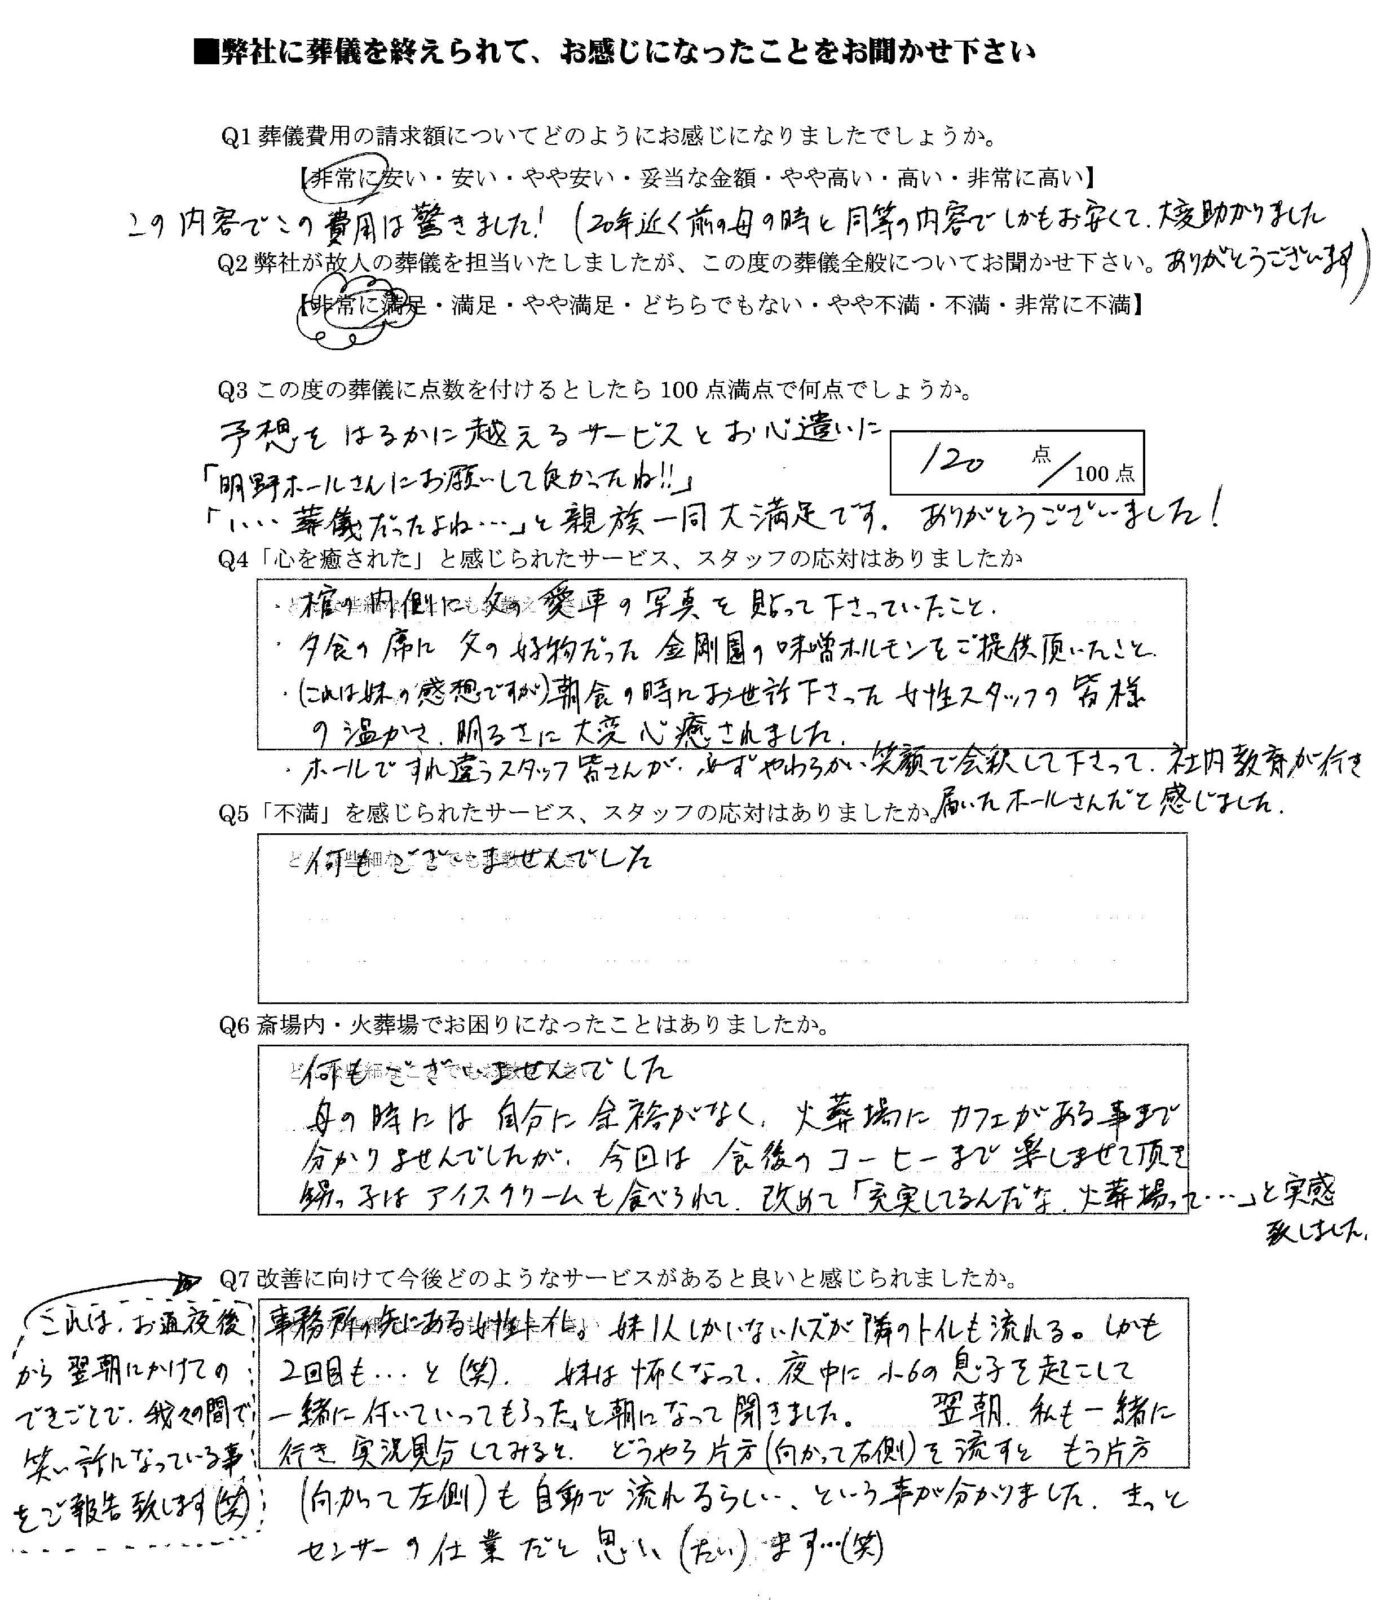 ■弊社に葬儀を終えられて、お感じになったことをお聞かせ下さい
Q1 葬儀費用の請求額についてどのようにお感じになりましたでしょうか。
【非常に安い・安い・やや安い・妥当な金額・やや高い・高い・非常に高い】
この内容でこの費用は驚きました!(20年近く前の母の時と同等の内容でしかもお安くて、大変助かりました
ありがとうございます)
Q2 弊社が故人の葬儀を担当いたしましたが、この度の葬儀全般についてお聞かせ下さい。
【非常に満足・満足・やや満足・どちらでもない・やや不満・不満・非常に不満】
Q3 この度の葬儀に点数を付けるとしたら 100 点満点で何点でしょうか。
予想をはるかに越えるサービスとお心遣いに
120 点/100 点
「明野ホールさんにお願いして良かったね!!」
「いい葬儀だったよね…」と親族一同大満足です。ありがとうございました!
Q4「心を癒された」と感じられたサービス、スタッフの応対はありましたか
・棺の内側に父の愛車の写真を貼って下さっていたこと、
・夕食の席に父の好物だった金剛園の味噌ホルモンをご提供頂いたこと、
・(これは妹の感想ですが)朝食の時にお世話下さった女性スタッフの皆様
の温かさ、明るさに大変心癒されました。
・ホールですれ違うスタッフ皆さんが、必ずやわらかい笑顔で会釈して下さって、社内教育が行き
届いたホールさんだと感じました。
Q5「不満」を感じられたサービス、スタッフの応対はありましたか。
何もございませんでした
Q6 斎場内・火葬場でお困りになったことはありましたか。
何もございませんでした
母の時には自分に余裕がなく、火葬場にカフェがある事まで
分かりませんでしたが、今回は食後のコーヒーまで楽しませて頂き
甥っ子はアイスクリームも食べられて、改めて「充実してるんだな、火葬場って…」と実感
致しました。
Q7 改善に向けて今後どのようなサービスがあると良いと感じられましたか。
これは、お通夜後
から翌朝にかけての
できごとで、我々の間で
笑い話になっている事
をご報告致します(笑)
事務所の先にある女性トイレ。妹1人しかいないハズが隣のトイレも流れる。しかも
2回目も…と(笑)。妹は怖くなって、夜中に小6の息子を起こして
一緒に付いていってもらった」と朝になって聞きました。翌朝、私も一緒に
行き実況見分してみると、どうやら片方(向かって右側)を流すともう片方
(向かって左側)も自動で流れるらしい、という事が分かりました。きっと
センサーの仕業だと思い(たい)ます…(笑)